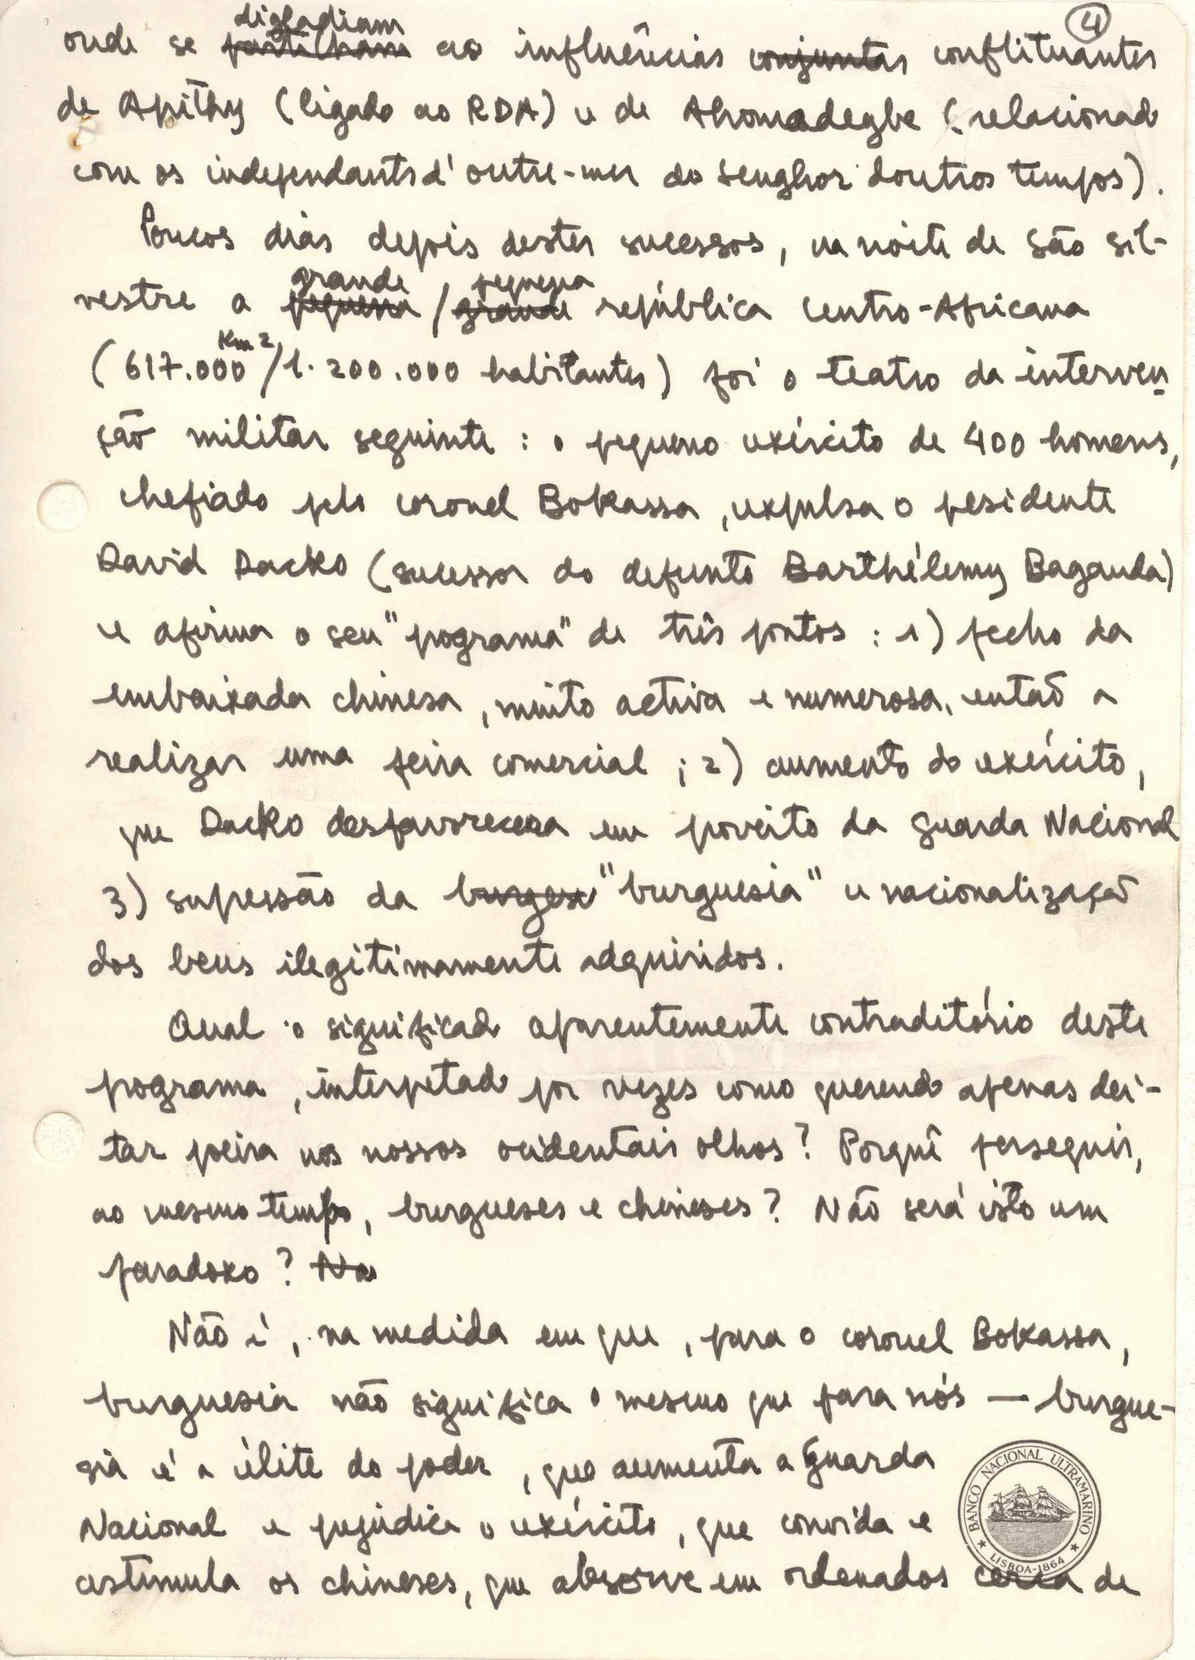 4
onde se partilham digladiam as influências conjuntas conflituantes
de Apithy (ligado ao RDA) e de Ahomadegbe (relacionado
com os independants d'outre-mer do Senghor doutros tempos).
Poucos dias depois destes sucessos, na noite de São Sil-
vestre a pequena grande / grande pequena república Centro-Africana
(617.000 Km2/1.200.000 habitantes) foi o teatro da interven-
ção militar seguinte: o pequeno exército de 400 homens,
chefiado pelo coronel Bokassa, expulsa o presidente
David Dacko (sucessor do defunto Barthélemy Baganda)
e afirma o seu "programa" de três pontos: 1) fecho da
embaixada chinesa, muito activa e numerosa, então a
realizar uma feira comercial; 2) aumento do exército,
que Dacko desfavorecera em proveito da Guarda Nacional
3) supressão da burgesi "burguesia" e nacionalização
dos bens ilegitimamente adquiridos.
Qual o significado aparentemente contraditório deste
programa, interpretado por vezes como querendo apenas dei-
tar poeira nos nossos ocidentais olhos? Porquê perseguir,
ao mesmo tempo, burgueses e chineses? Não será isto um
paradoxo? Na
Não é, na medida em que, para o coronel Bokassa,
burguesia não significa o mesmo que para nós — burgue-
sia é a élite do poder, que aumenta a Guarda
Nacional e prejudica o exército, que convida e
estimula os chineses, que absorve em ordenados cerca de
BANCO NACIONAL ULTRAMARINO
LISBOA-1864